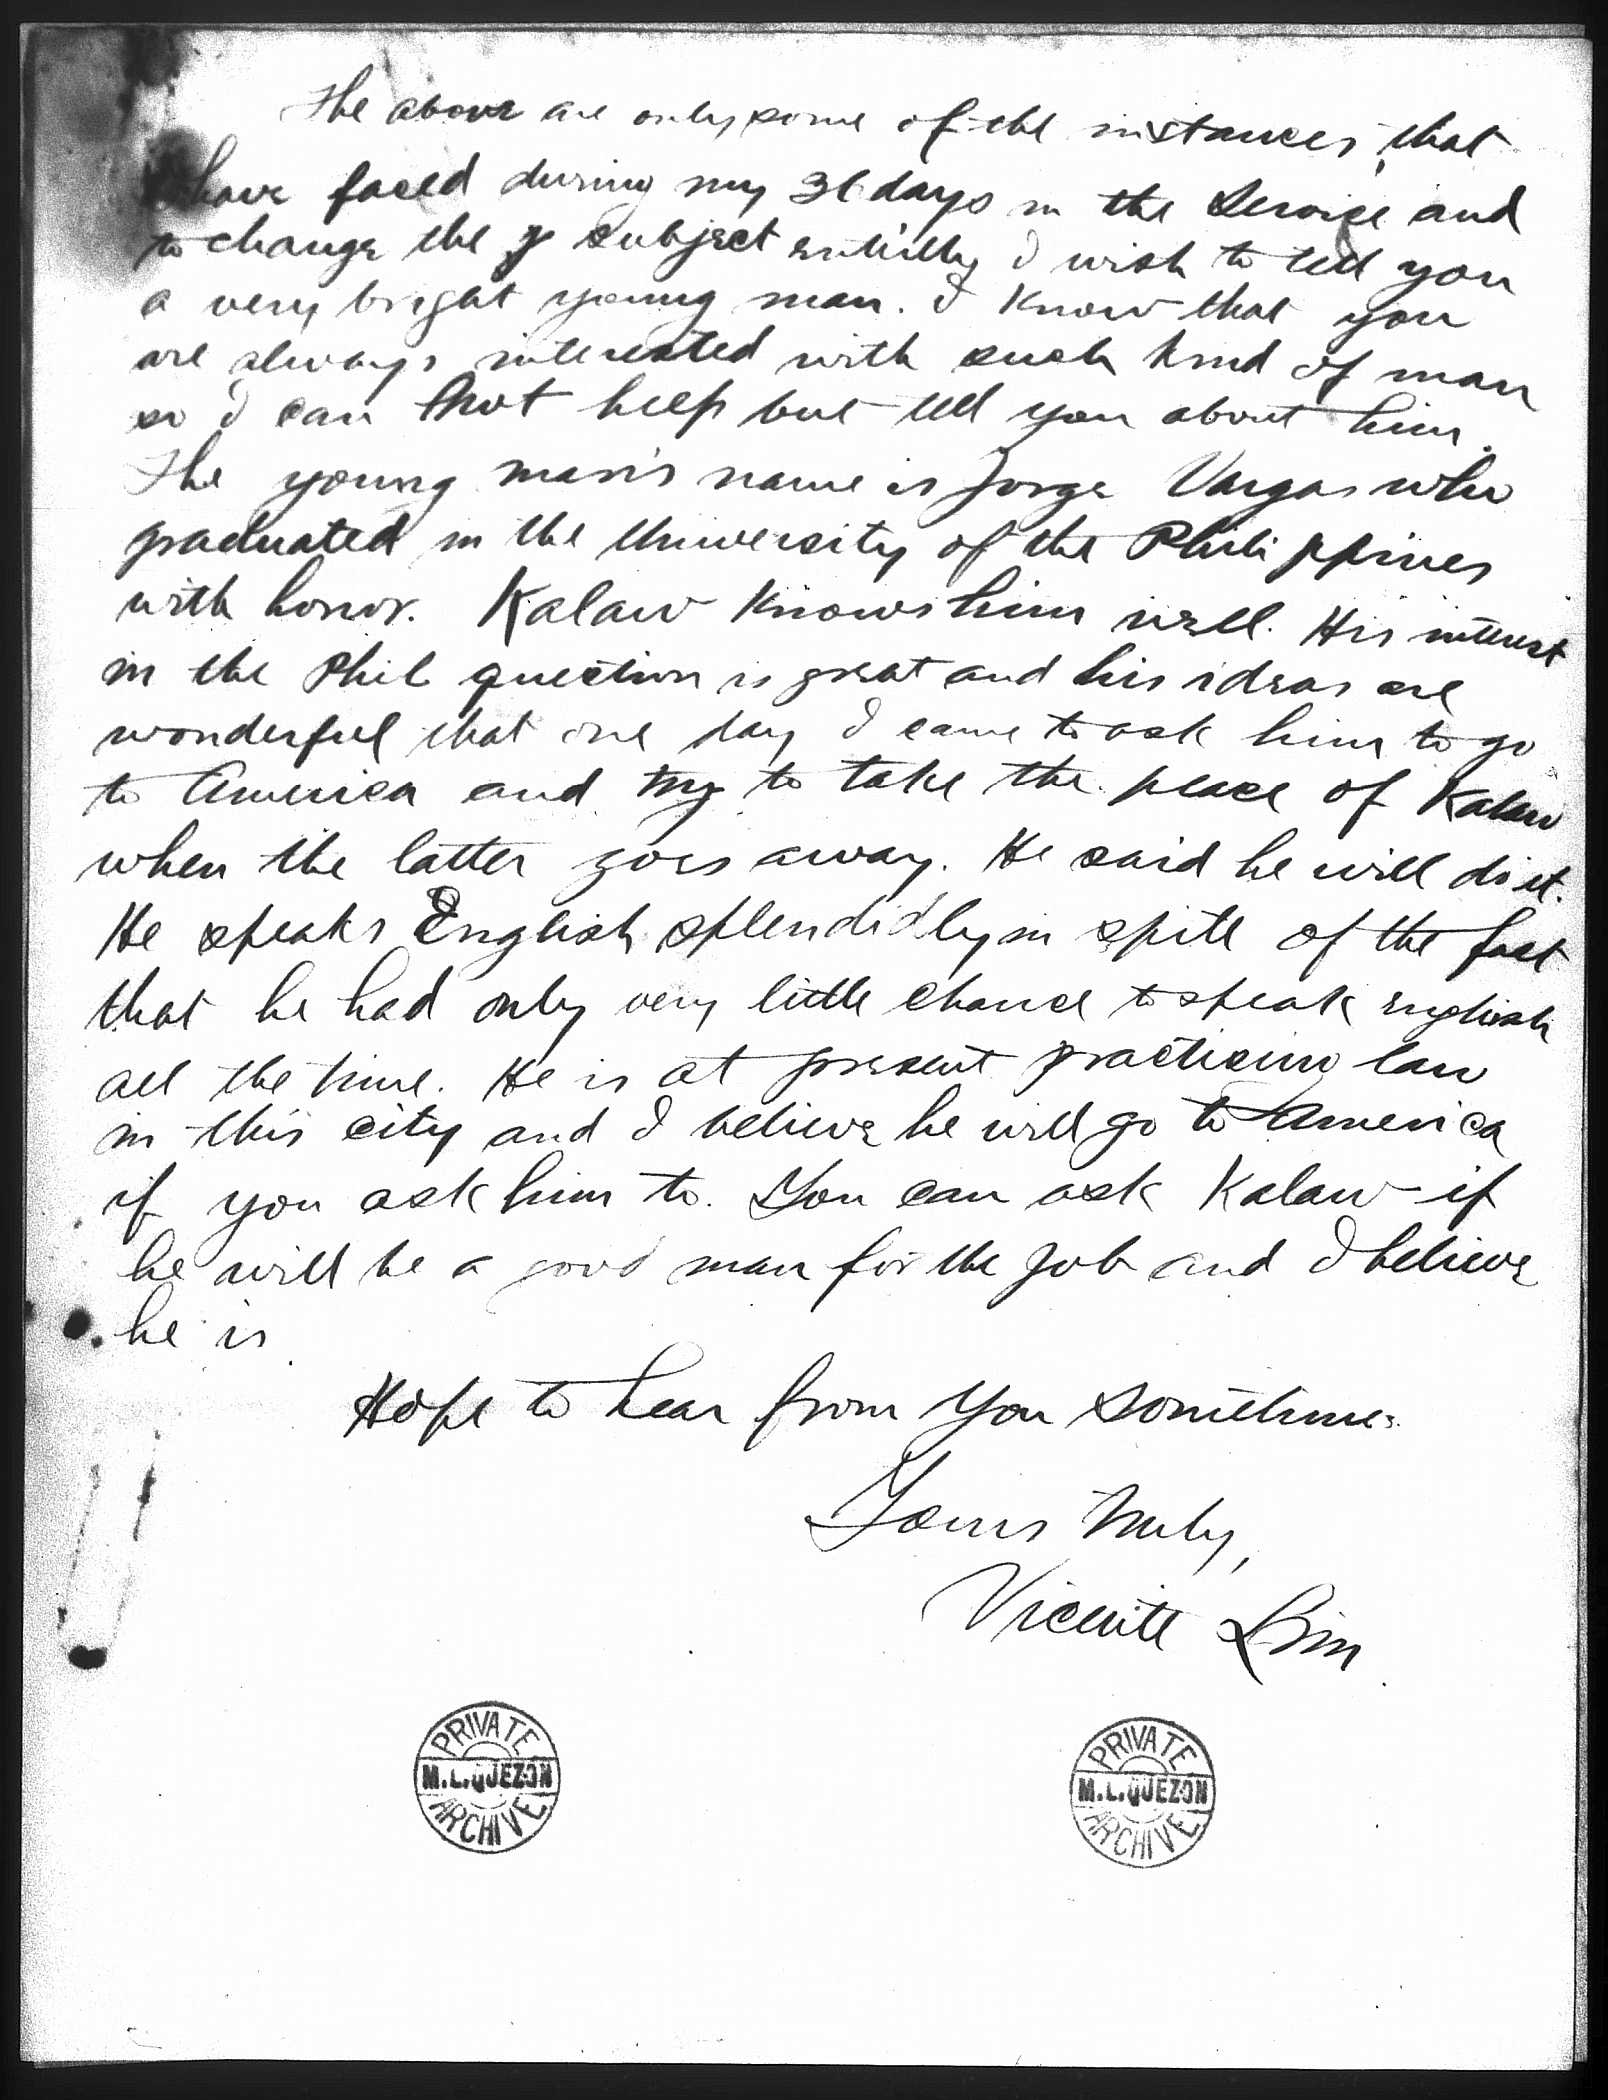 The above are only some of the instances that
I have faced during my 36 days in the Service and
to change the subject entirely I wish to tell you
a very bright young man. I know that you
are always interested with such kind of man
so I can not help but tell you about him.
The young man's name is Jorge Vargas who
graduated in the University of the Philippines
with honor. Kalaw knows him well. His interest
in the Phil question is great and his ideas are
wonderful that one day I came to ask him to go
to America and try to take the place of Kalaw
when the latter goes away. He said he will do it.
He speaks English splendidly in spite of the fact
that he had only very little chance to speak english
all the time. He is at present practicing law
in this city and I believe he will go to America
if you ask him to. You can ask Kalaw if
he will be a good man for the job and I believe
he is.
Hope to hear from you sometimes.
Yours truly,
Vicente Lim
PRIVATE
M.L.QUEZON
ARCHIVE
PRIVATE
M.L.QUEZON
ARCHIVE